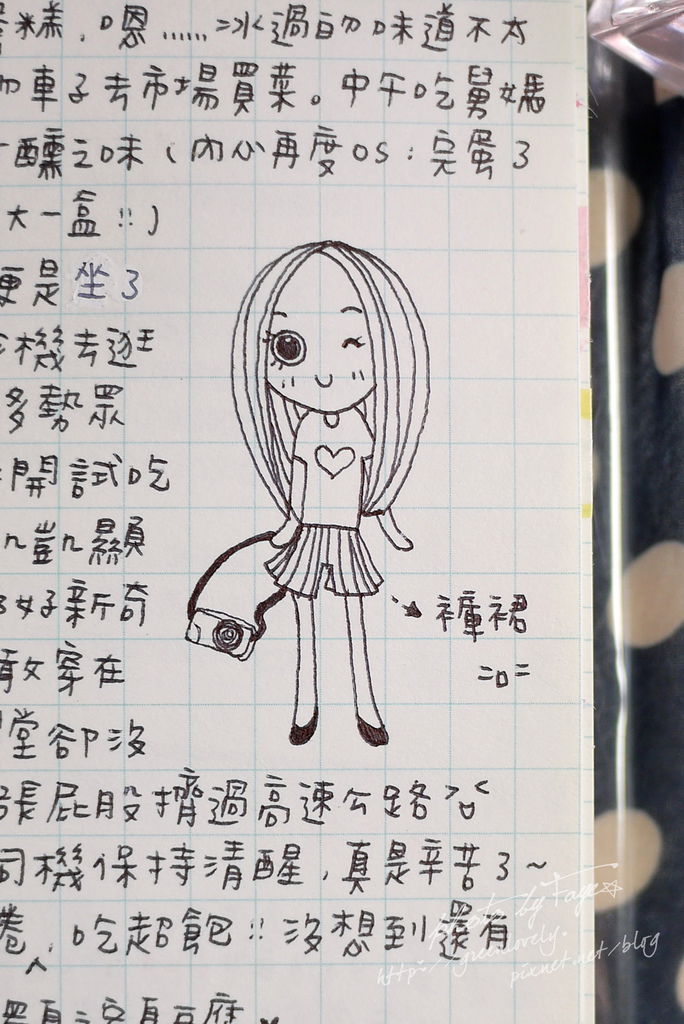 糕,嗯......冰過的味道不太
車子去市場買菜。中午吃舅媽
醺之味(內心再度OS:完蛋了
大一盒!!)
更是坐了
機去逛
多勢眾
開試吃
ㄇ豈ㄇ顯
好新奇
敢穿在
褲裙
=口=
堂卻沒
張屁股擠過高速公路>"<
司機保持清醒,真是辛苦了~
卷,吃超飽!!沒想到還有
Photo by Faye☆
http://greenlovely.
pixnet.net/blog